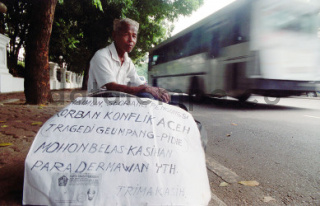 KORBAN KONFLIK ACEH
TRAGEDI GEUMPANG-PIDIE
MOHON BELAS KASIHAN
PARA DERMAWAN YTH
TRIMA KASIH